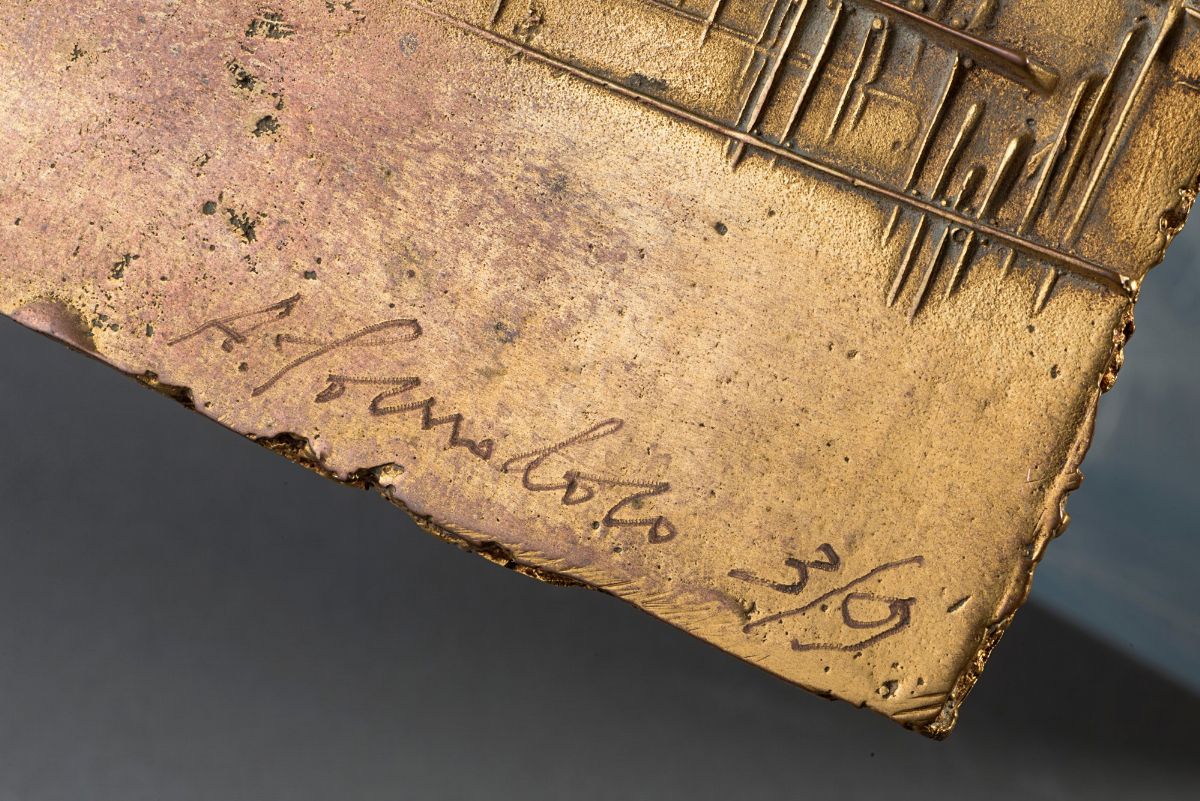 A. Pomodoro 3/9